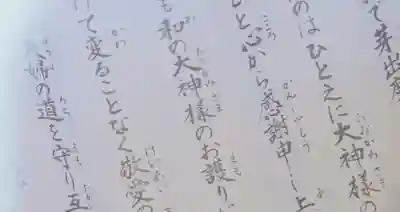 て芽出度
のはひとえに大神様の
と心から感謝申し上
も和の大神様のお護り
けて変ることなく敬愛の
婦の道を守り互